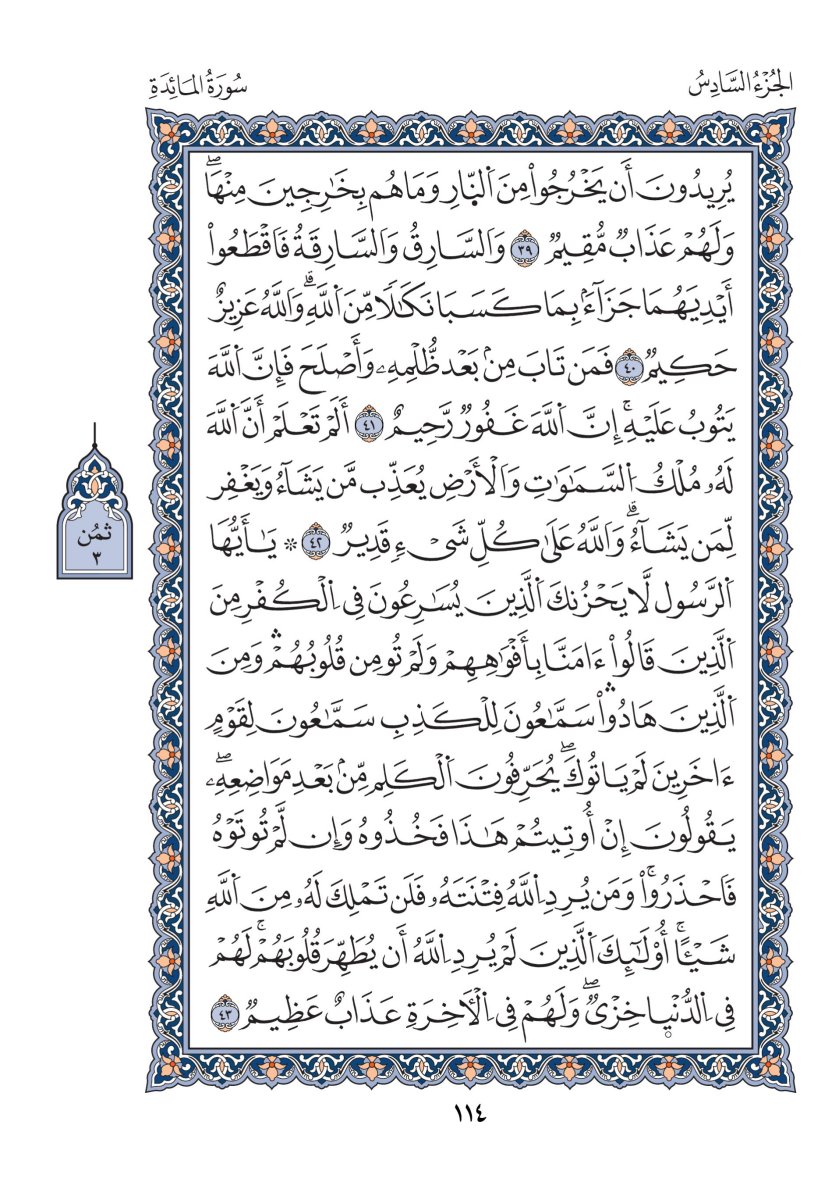 الجُزْءُ السَّادِسُ
سُورَةُ المَائِدَةِ
يُرِيدُونَ أَن يَخْرُجُواْ مِنَ اَ۬لنّ۪ارِ وَمَا هُم بِخَٰرِجِينَ مِنْهَاۖ
وَلَهُمْ عَذَابٌ مُّقِيمٌۖ ٣٩ وَالسَّارِقُ وَالسَّارِقَةُ فَاقْطَعُواْ
أَيْدِيَهُمَا جَزَآءَۢ بِمَا كَسَبَا نَكَٰلٗا مِّنَ اَ۬للَّهِۗ وَاللَّهُ عَزِيزٌ
حَكِيمٌ ٤٠ فَمَن تَابَ مِنۢ بَعْد ظُّلْمِهِۦ وَأَصْلَحَ فَإِنَّ اَ۬للَّهَ
يَتُوبُ عَلَيْهِۚ إِنَّ اَ۬للَّهَ غَفُورٌ رَّحِيمٌ ٤١ أَلَمْ تَعْلَمْ أَنَّ اَ۬للَّهَ
لَهُۥ مُلْكُ اُ۬لسَّمَٰوَٰتِ وَالْأَرْضِ يُعَذِّب مَّن يَشَآءُ وَيَغْفِر
لِّمَن يَشَآءُۗ وَاللَّهُ عَلَىٰ كُلِّ شَيْءٖ قَدِيرٌ ٤٢ * يَٰأَيُّهَا
اَ۬لرَّسُول لَّا يَحْزُنكَ اَ۬لَّذِينَ يُسَٰرِعُونَ فِي اِ۬لْكُفْرِ مِنَ
اَ۬لَّذِينَ قَالُواْ ءَامَنَّا بِأَفْوَٰهِهِمْ وَلَمْ تُومِن قُلُوبُهُمْۛ وَمِنَ
اَ۬لَّذِينَ هَادُواْۛ سَمَّٰعُونَ لِلْكَذِبِ سَمَّٰعُونَ لِقَوْمٍ
ءَاخَرِينَ لَمْ يَاتُوكَۖ يُحَرِّفُونَ اَ۬لْكَلِم مِّنۢ بَعْدِ مَوَاضِعِهِۦۖ
يَقُولُونَ إِنْ أُوتِيتُمْ هَٰذَا فَخُذُوهُ وَإِن لَّمْ تُوتَوْهُ
فَاحْذَرُواْۚ وَمَن يُرِدِ اِ۬للَّهُ فِتْنَتَهُۥ فَلَن تَمْلِكَ لَهُۥ مِنَ اَ۬للَّهِ
شَيْـًٔاۚ أُوْلَٰٓئِكَ اَ۬لَّذِينَ لَمْ يُرِدِ اِ۬للَّهُ أَن يُطَهِّرَ قُلُوبَهُمْۚ لَهُمْ
فِي اِ۬لدُّنْي۪ا خِزْيٌۖ وَلَهُمْ فِي اِ۬لْأٓخِرَةِ عَذَابٌ عَظِيمٌ ٤٣
ثمُن
٣
١١٤